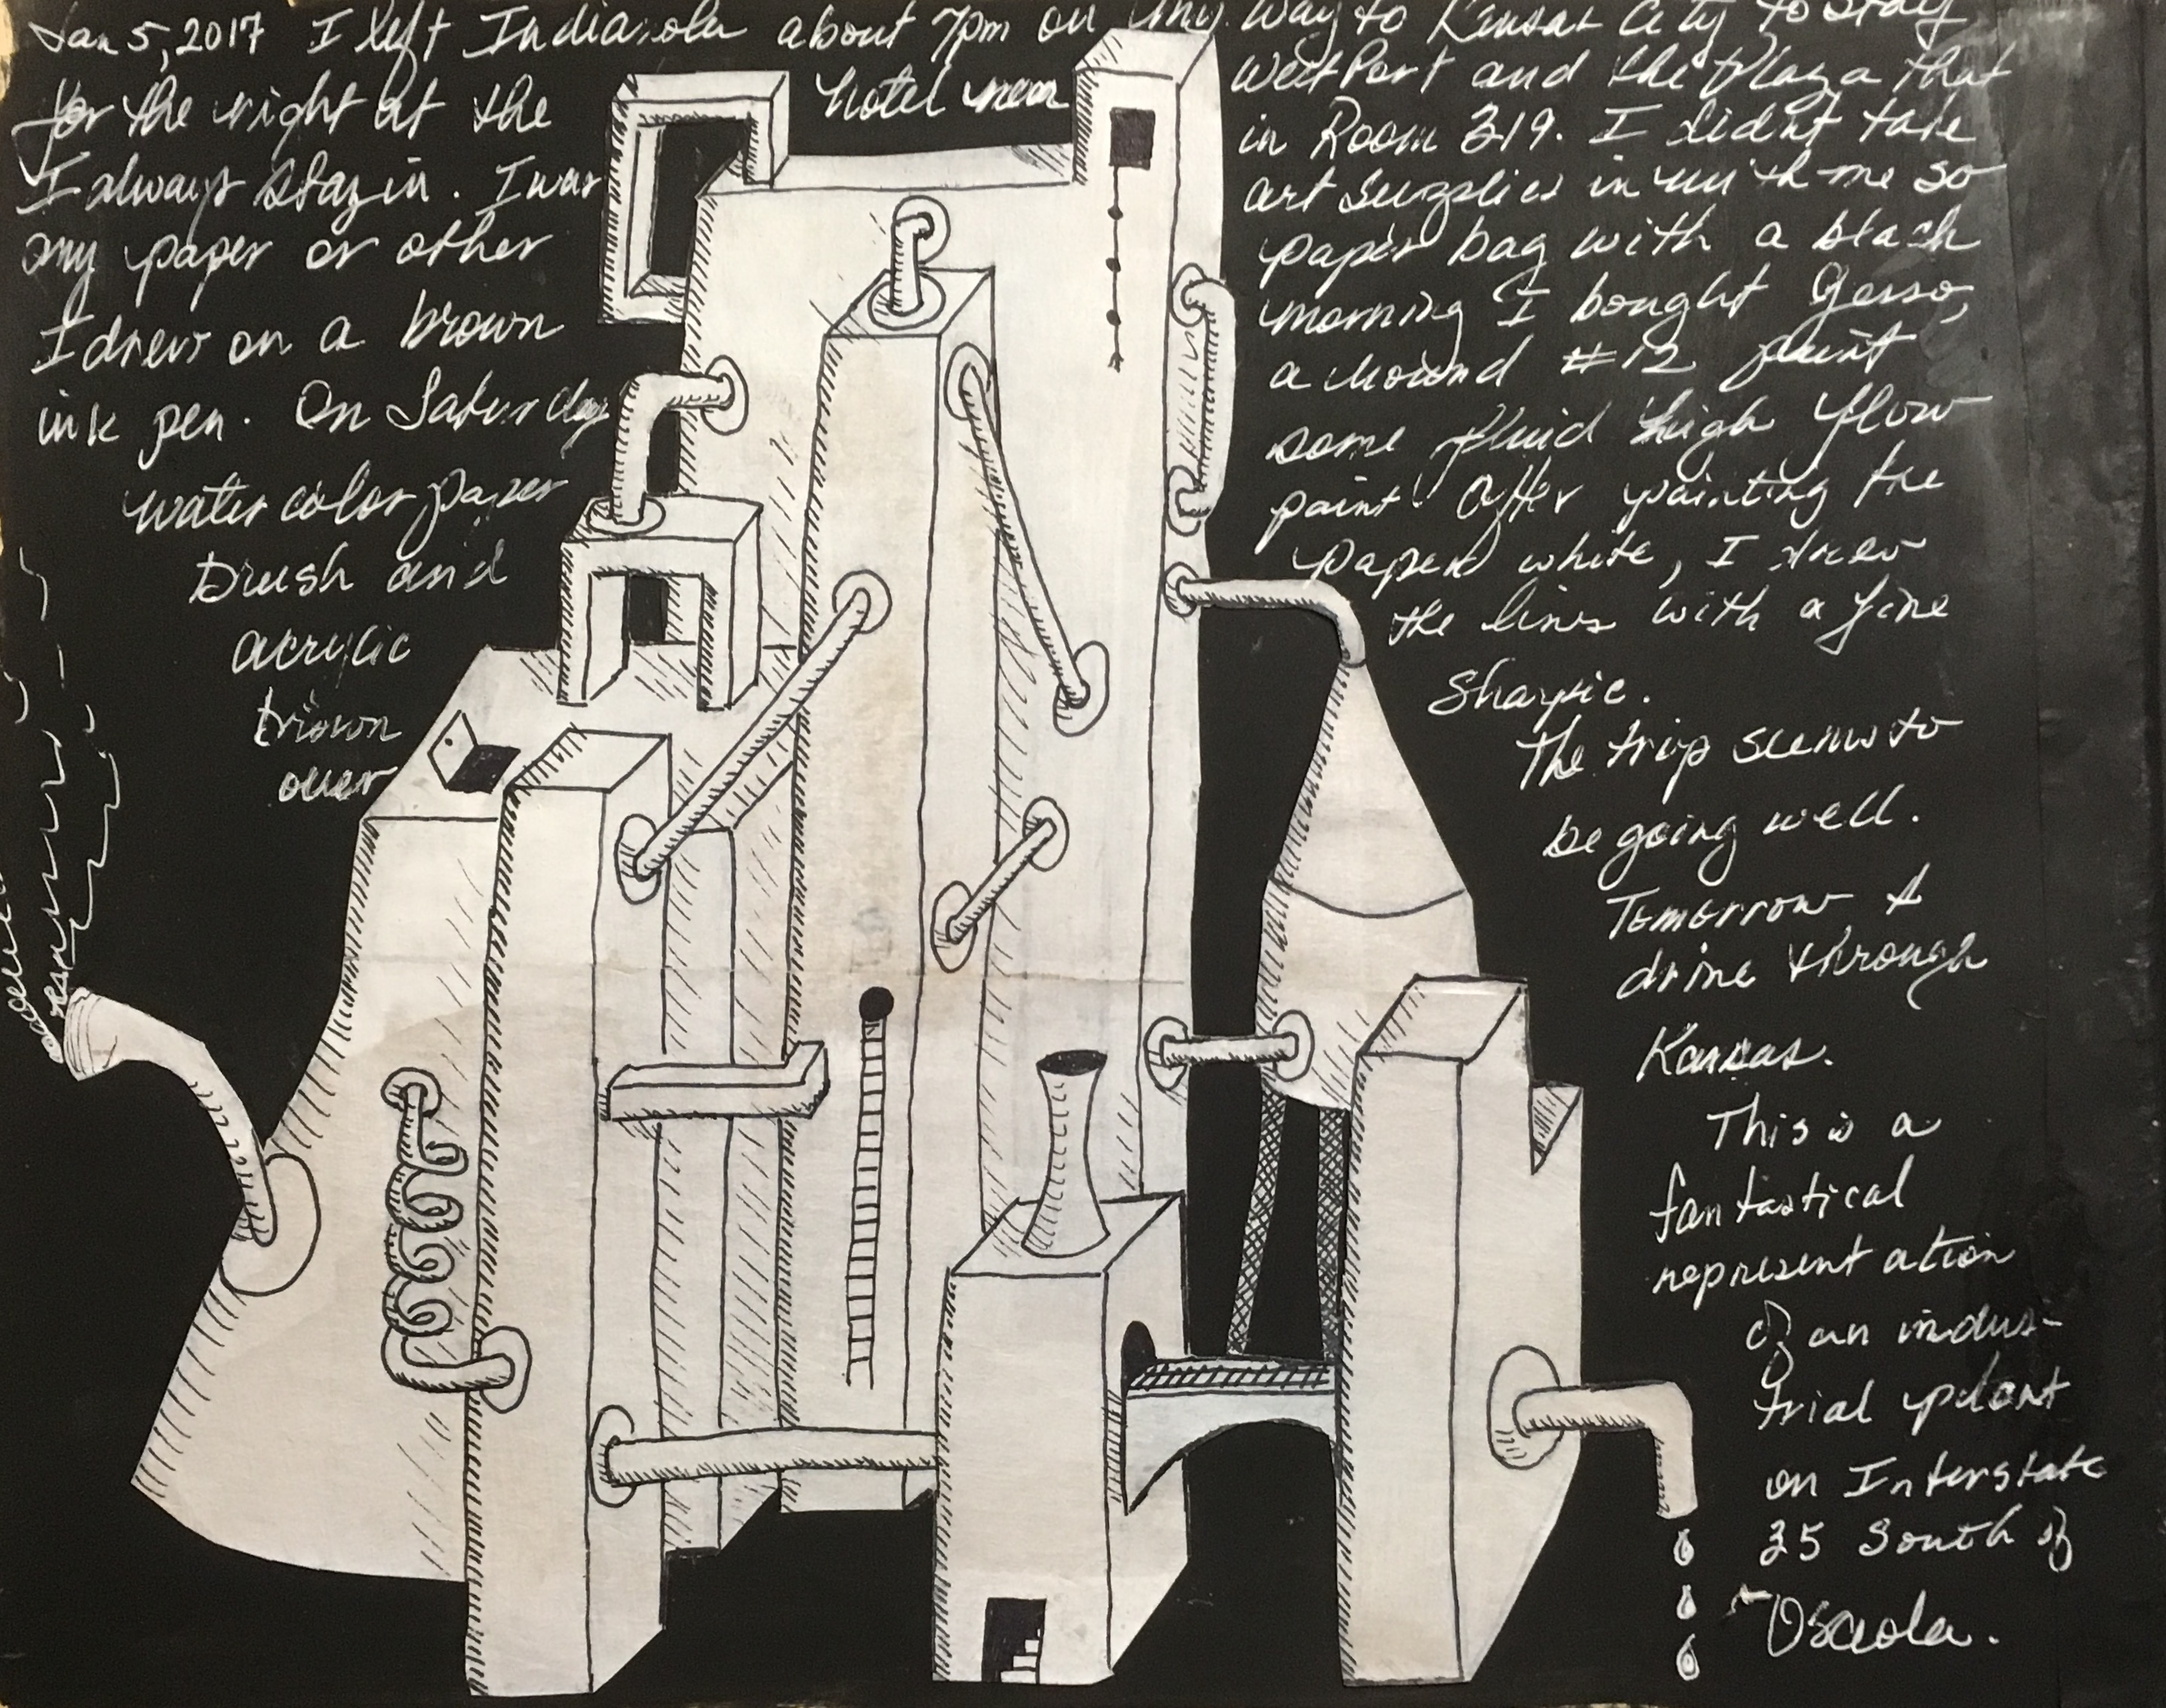 Jan 5, 2017 I left Indianola about 7pm on my way to Kansas City to stay
for the night at the hotel near Westport and the Plaza that
I always stay in. I was in Room 319. I didn't take
any paper or other art supplies in with me so
I drew on a brown paper bag with a black
ink pen. On Saturday morning I bought Gesso,
water color paper a round #12 paint
brush and some fluid high flow
acrylic paint. After painting the
brown paper white, I drew
over the lines with a fine
Sharpie.
The trip seems to
be going well.
Tomorrow I
drive through
Kansas.
This is a
fantastical
representation
of an indus-
trial plant
on Interstate
35 South of
Osceola.